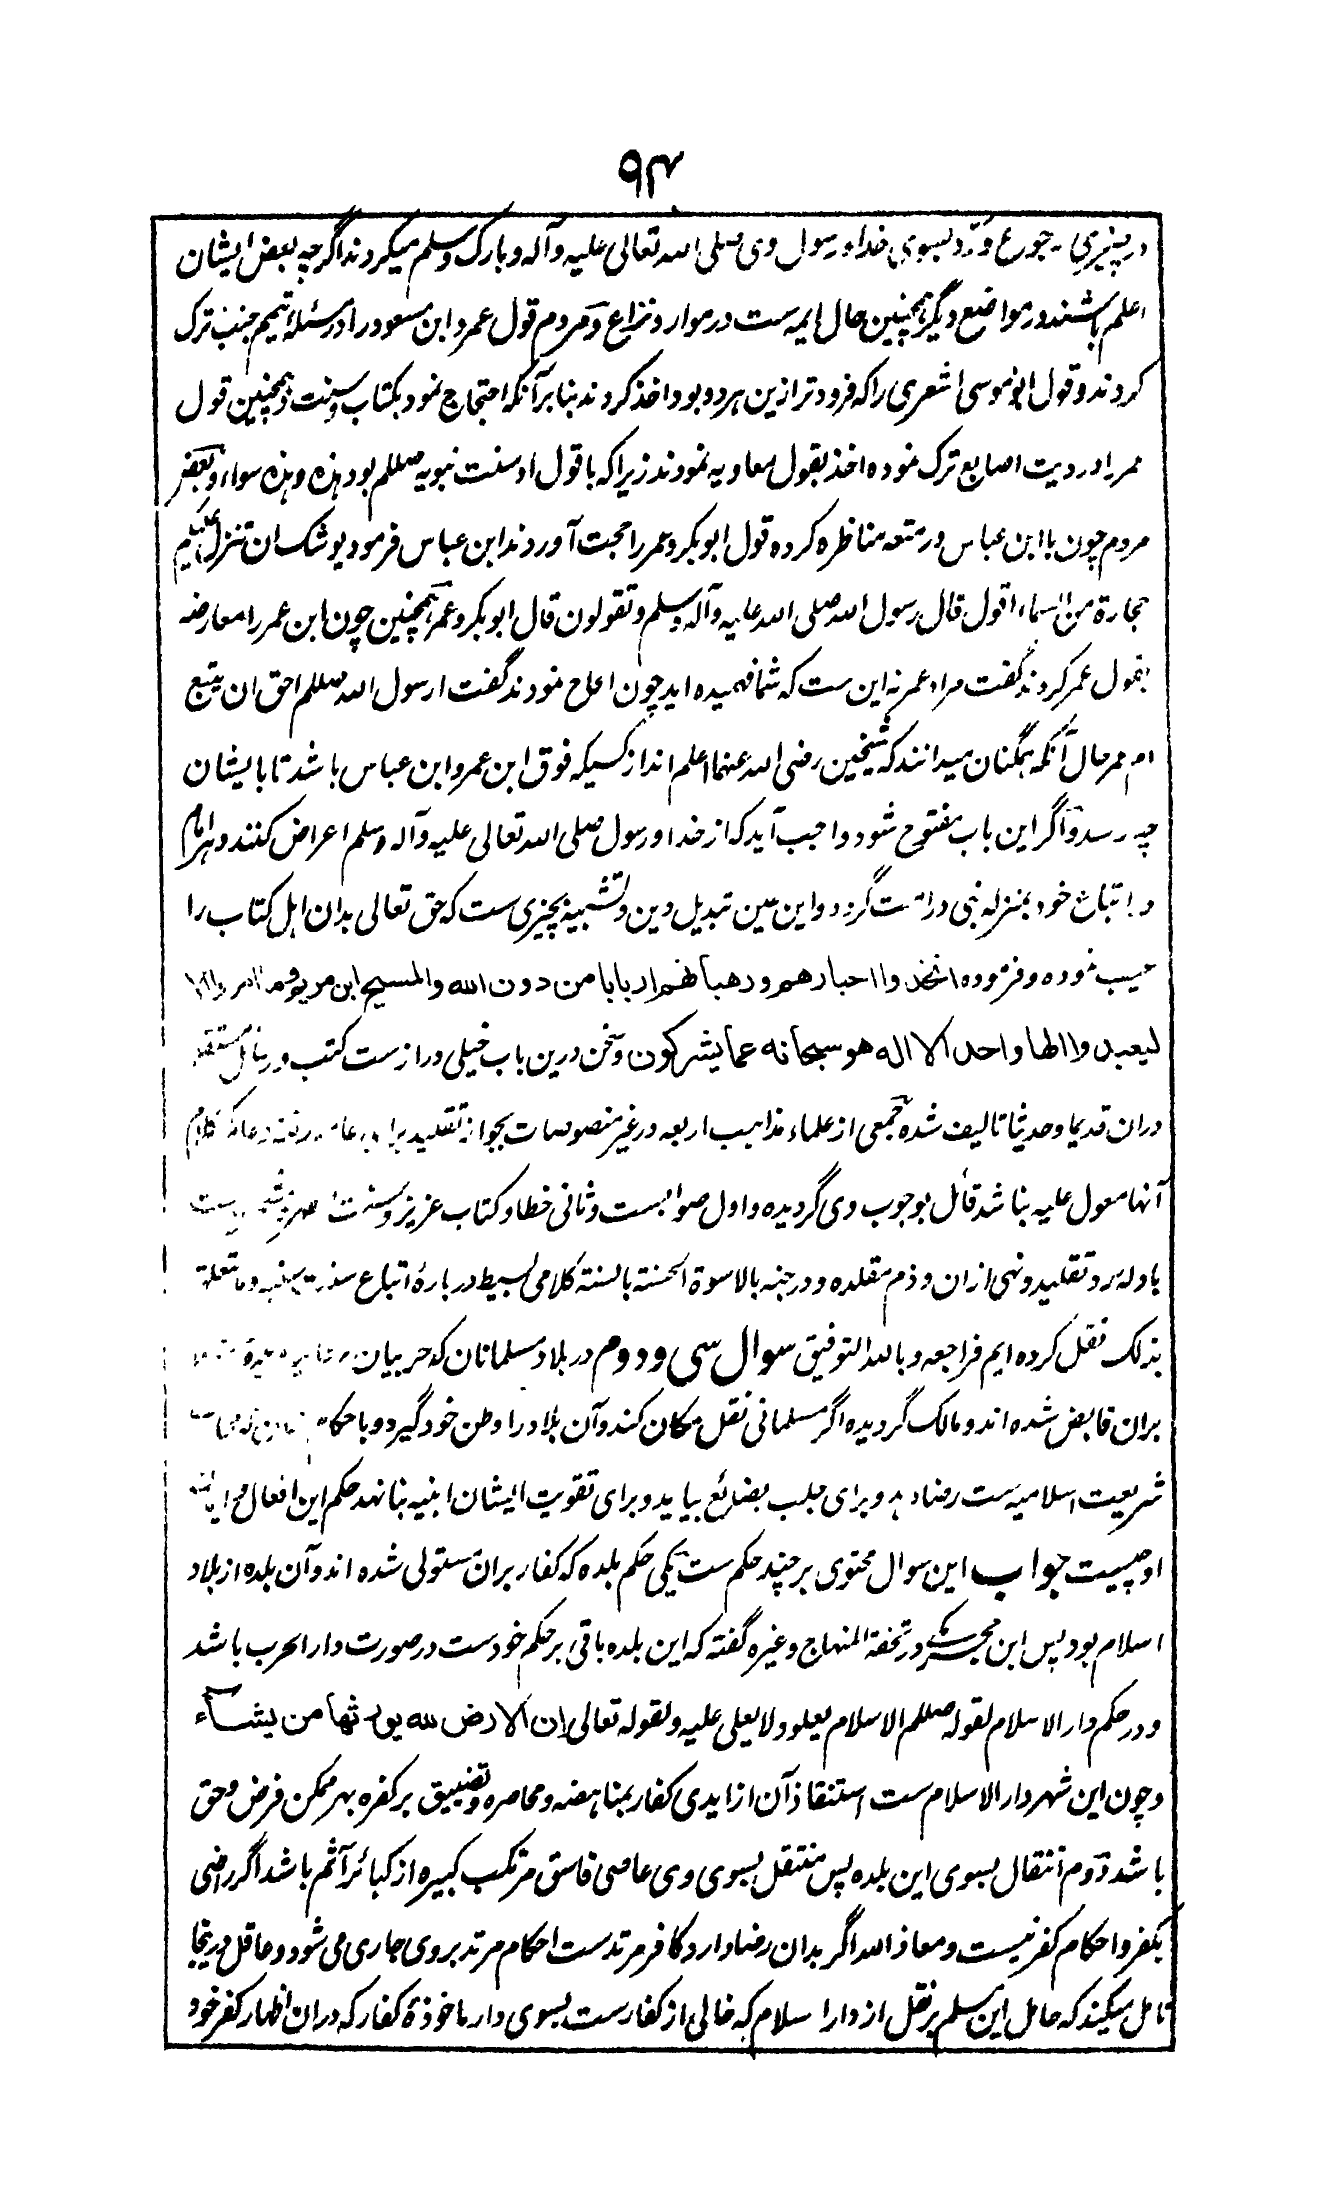 ۹۴
در چیزی رجوع ورد بسوی خدا و رسول وی صلی الله تعالی علیه وآله وبارک وسلم میکردند اگرچه بعض ایشان
اعلم باشند در مواضع دیگر همچنین حال ایمه ست در موارد نزاع ومردم قول عمر وابن مسعود را در مسئلهٔ تیمم جنب ترک
کردند وقول ابو موسی اشعری را که فروتر ازین هر دو بود اخذ کردند بنا برآنکه احتجاج نمود بکتاب وسنت وهمچنین قول
عمر را در دیت اصابع ترک نموده اخذ بقول معاویه نمودند زیراکه با قول او سنت نبویه صللم بود هذه وهذه سواء وبعض
مردم چون با ابن عباس در متعه مناظره کرده قول ابوبکر وعمر را حجت آوردند ابن عباس فرمود یوشک ان تنزل علیکم
حجارة من السماء اقول قال رسول الله صلی الله علیه وآله وسلم وتقولون قال ابوبکر وعمر همچنین چون ابن عمر را معارضه
بقول عمر کردند گفت مراد عمر نه این ست که شما فهمیده اید چون الحاح نمودند گفت ارسول الله صللم احق ان یتبع
ام عمر حال آنکه همگنان میدانند که شیخین رضی الله عنهما اعلم اند از کسیکه فوق ابن عمر وابن عباس باشد تا بایشان
چه رسد واگر این باب مفتوح شود واجب آید که از خدا ورسول صلی الله تعالی علیه وآله وسلم اعراض کنند وهر امام
در اتباع خود بمنزله نبی در امت گردد واین عین تبدیل دین وتشبیه بچیزی ست که حق تعالی بدان اهل کتاب را
عیب نموده وفرموده اتخذوا احبارهم ورهبانهم اربابا من دون الله والمسیح ابن مریم وما امروا الا
لیعبدوا الها واحدا لا اله هو سبحانه عما یشرکون وسخن درین باب خیلی دراز ست کتب ورسائل مستقله
دران قدیما وحدیثا تالیف شده جمعی از علماء مذاهب اربعه در غیر منصوصات بجواز تقلید برای عامه رفته وعامهٔ کلام
آنها معول علیه بناشد قائل بوجوب وی گردیده واول صوابست وثانی خطا وکتاب عزیز وسنت
بادله رد تقلید ونهی ازان وذم مقلده ودر جنه بالاسوة الحسنة بالسنة کلامی بسیط دربارهٔ اتباع سنت سنیه وما تعلق
بذلک نقل کرده ایم فراجعه وبالله التوفیق سوال سی ودوم در بلاد مسلمانان که حربیان
بران قابض شده اند ومالک گردیده اگر مسلمانی نقل مکان کند وآن بلاد را وطن خود گیرد وباحکام
شریعت اسلامیه ست رضا دهد وبرای جلب بضائع بیاید وبرای تقویت ایشان ابنیه بنا نهد حکم این افعال
او چیست جواب این سوال محتوی بر چند حکم ست یکی حکم بلده که کفار بران مستولی شده اند وآن بلده از بلاد
اسلام بود پس ابن حجر مکی در تحفة المنهاج وغیره گفته که این بلده باقی بر حکم خود ست در صورت دار الحرب باشد
ودر حکم دار الاسلام لقوله صللم الاسلام یعلو ولا یعلی علیه ولقوله تعالی ان الارض لله یورثها من یشاء
وچون این شهر دار الاسلام ست استنقاذ آن از ایدی کفار بمناهضه ومحاصره وتضییق بر کفره بهر ممکن فرض وحق
باشد دوم انتقال بسوی این بلده پس منتقل بسوی وی عاصی فاسق مرتکب کبیره از کبائر آثم باشد اگر راضی
بکفر واحکام کفر نیست ومعاذ الله اگر بدان رضا دارد کافر مرتد ست احکام مرتد بروی جاری می شود وعاقل درینجا
تامل میکند که حامل این مسلم بر نقل از دار اسلام که خالی از کفار ست بسوی دار ماخوذهٔ کفار که دران اظهار کفر خود